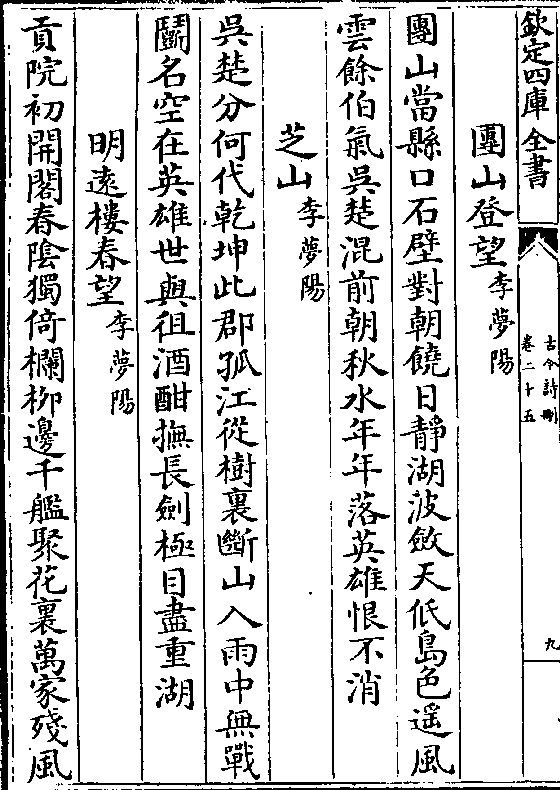 欽定四庫全書
古今詩刪
卷二十五
九
團山登望李夢陽
團山當縣口石壁對朝饒日靜湖波斂天低島色遥風
雲餘伯氣吳楚混前朝秋水年年落英雄恨不消
芝山李夢陽
吳楚分何代乾坤此郡孤江從樹裏斷山入雨中無戰
鬭名空在英雄世與徂酒酣撫長劍極目盡重湖
明遠樓春望李夢陽
貢院初開閣春陰獨倚欄柳邊千艦聚花裏萬家殘風